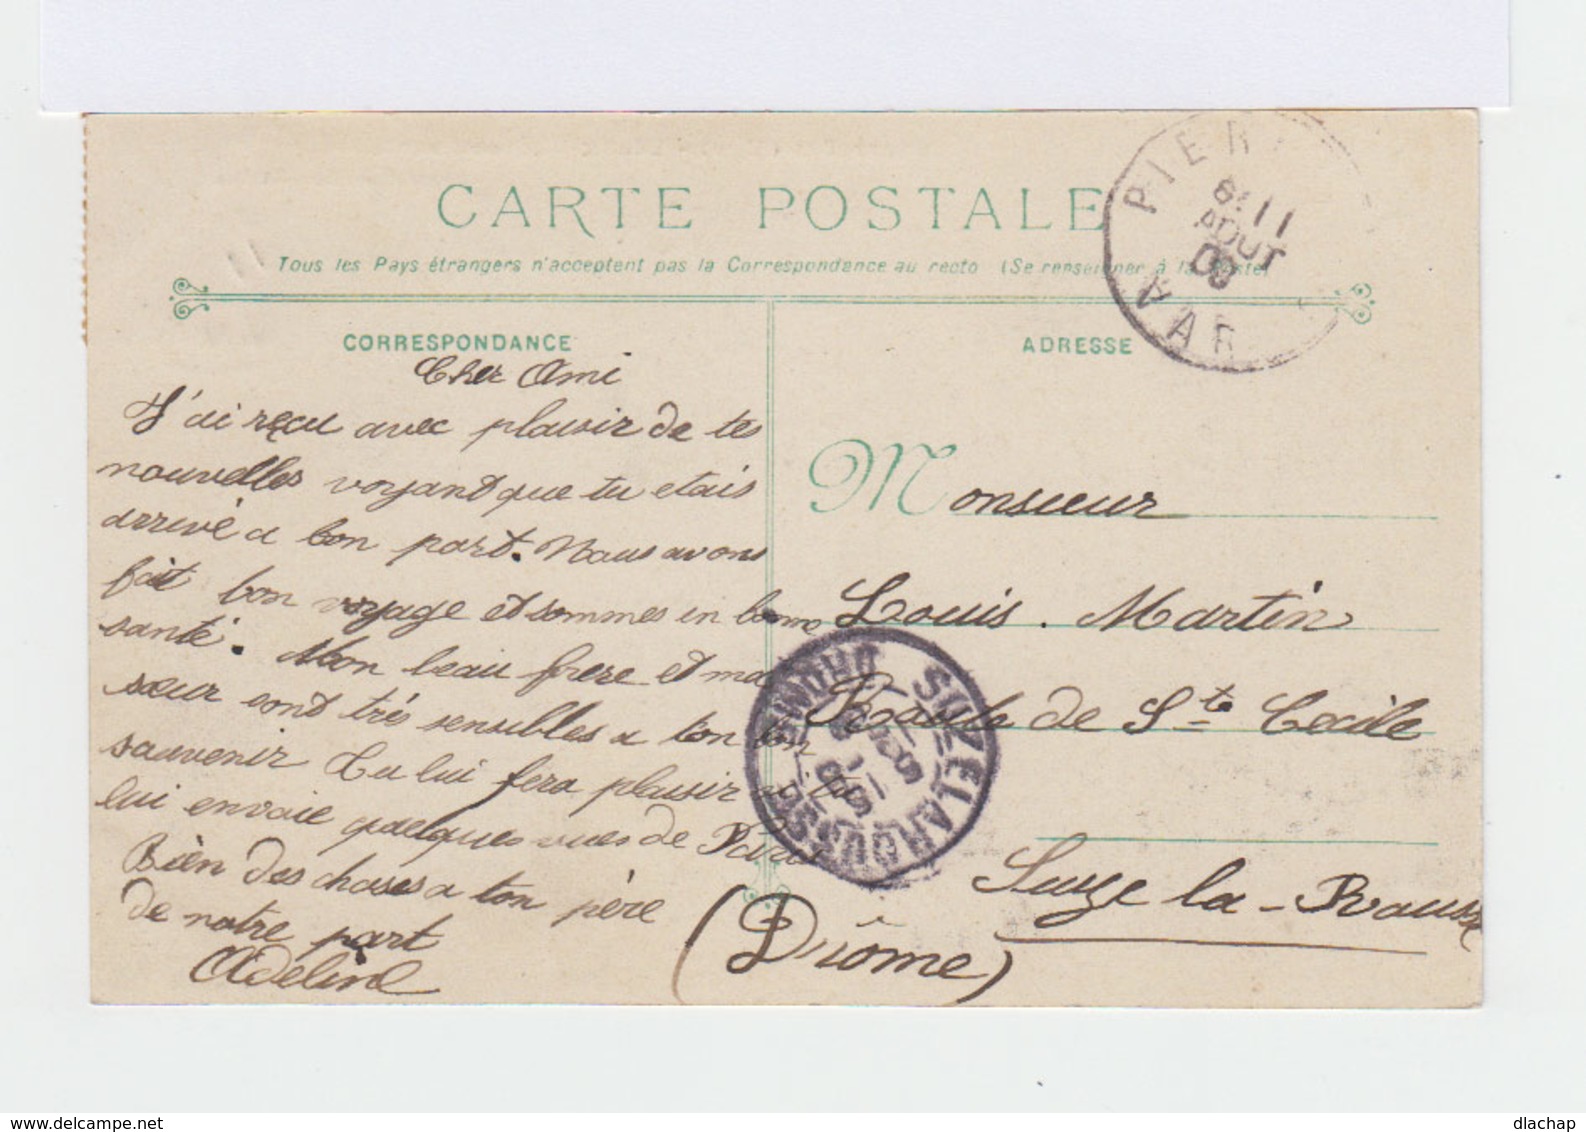 CARTE POSTALE
Tous les Pays étrangers n'acceptent pas la Correspondance au recto (Se renseigner à la Poste)
PIER
8 11
AOUT
09
VAR
CORRESPONDANCE
Cher Ami
J'ai reçu avec plaisir de tes
nouvelles voyant que tu etais
arrivé a bon port. Nous avons
fait bon voyage et sommes en bonne
santé. Mon beau frère et ma
sœur sont très sensibles a ton bon
souvenir Tu lui fera plaisir si tu
lui envoie quelques vues de Paris
Bien des choses a ton père
de notre part
Adeline
ADRESSE
Monsieur
Louis. Martin
Route de Ste Cecile
Suze la-Rousse
(Drôme)
SUZE LA ROUSSE
DROME